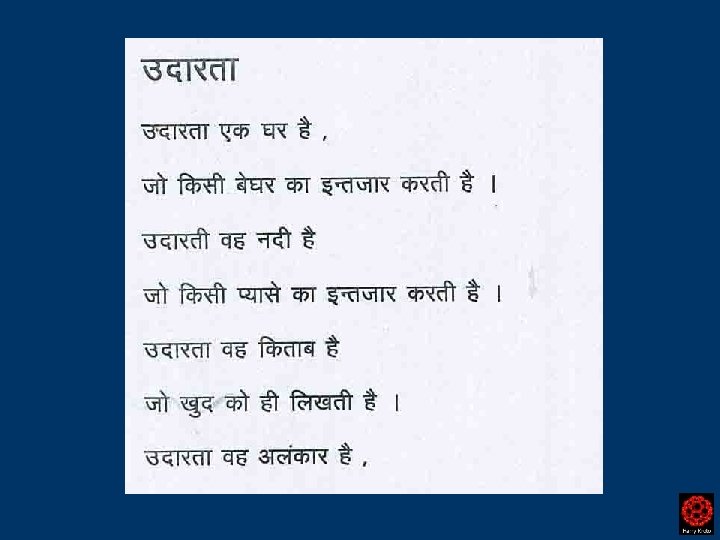 उदारता
उदारता एक घर है ,
जो किसी बेघर का इन्तजार करती है ।
उदारती वह नदी है
जो किसी प्यासे का इन्तजार करती है ।
उदारता वह किताब है
जो खुद को ही लिखती है ।
उदारता वह अलंकार है ,
Harry Kroto